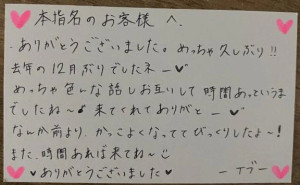 本指名のお客様へ
ありがとうございました。めっちゃ久しぶり!!
去年の12月ぶりでしたネー♥
めっちゃ色んな話しお互いして時間あっというま
でしたね〜♪ 来てくれてありがとー♥
なんか前より、かっこよくなっててびっくりしたよ〜!
また、時間あれば来てね〜☺
♥ありがとうございました♥